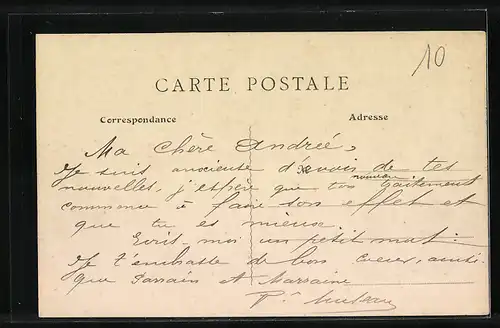 10
CARTE POSTALE
Correspondance Adresse
Ma chère Andrée,
Je suis anxieuse d'avoir de tes
nouveau
nouvelles, j'espère que ton traitement
commence à faire son effet et
que tu es mieux.
Ecris-moi un petit mot.
Je t'embrasse de bon cœur, ainsi
que Parrain et Marraine